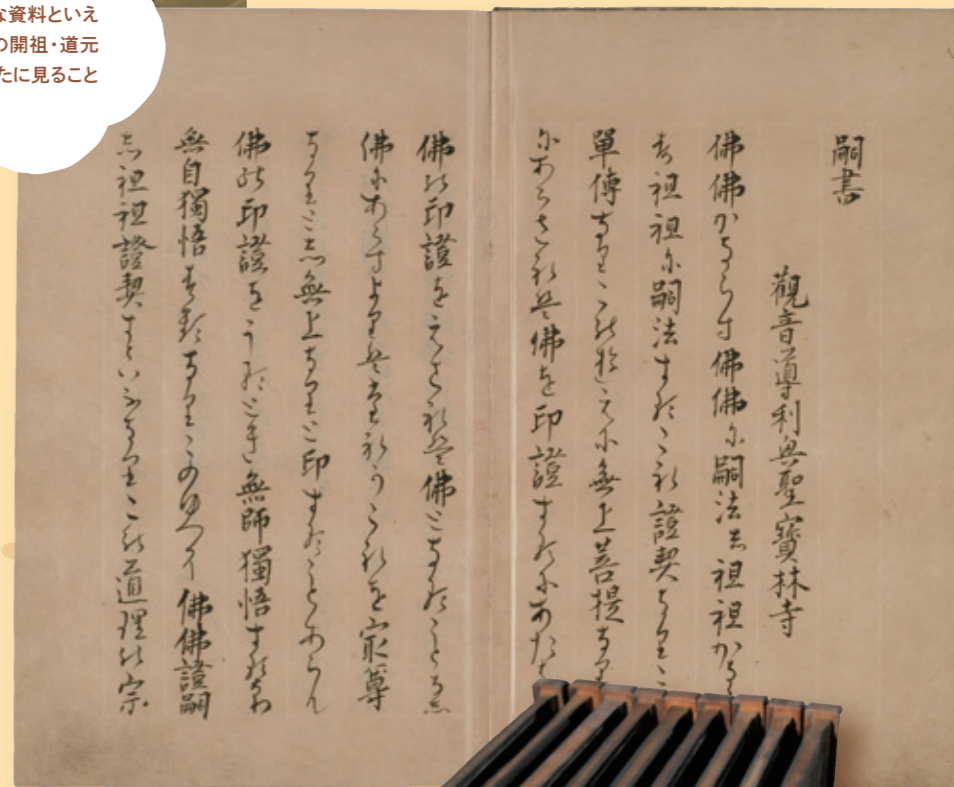 な資料といえ
の開祖・道元
たに見ること
嗣書
觀音導利興聖寶林寺
佛佛かならす佛佛に嗣法し祖祖かなら
す祖祖に嗣法するこれ證契なりこ
單傳なりこのゆゑに無上菩提なり
にあらされは佛を印證するにあた
佛の印證をえされは佛となることなし
佛にあらすよりはたれかこれを最尊
なりとし無上なりと印することあらん
佛の印證をうるとき無師獨悟するなり
無自獨悟するなりこのゆへに佛佛證嗣
し祖祖證契すといふなりこの道理の宗